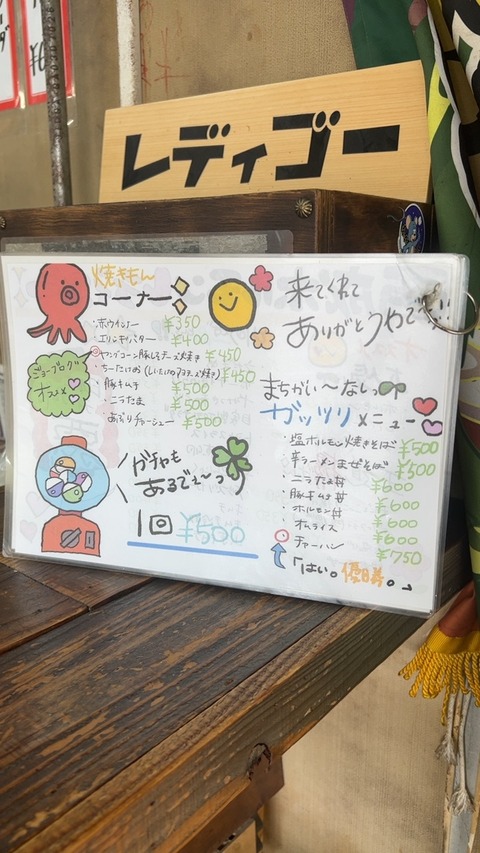 レディゴー
焼きもん
コーナー
・ホウインナー ¥350
・エリンギバター ¥400
ヤングコーン豚しそチーズ焼き ¥450
・ちーたけお(しいたけのマヨチーズ焼き) ¥450
・豚キムチ ¥500
・ニラたま ¥500
・あぶりチャーシュー ¥500
ジョーブログ
オススメ
ガチャも
あるでぇ〜っ
1回 ¥500
来てくれて
ありがとうやで
まちがい〜ないっ
ガッツリメニュー
・塩ホルモン焼きそば ¥500
・辛ラーメンまぜそば ¥500
・ニラたま丼 ¥600
・豚キムチ丼 ¥600
・ホルモン丼 ¥600
・オムライス ¥600
・チャーハン ¥750
「はい。優勝。」